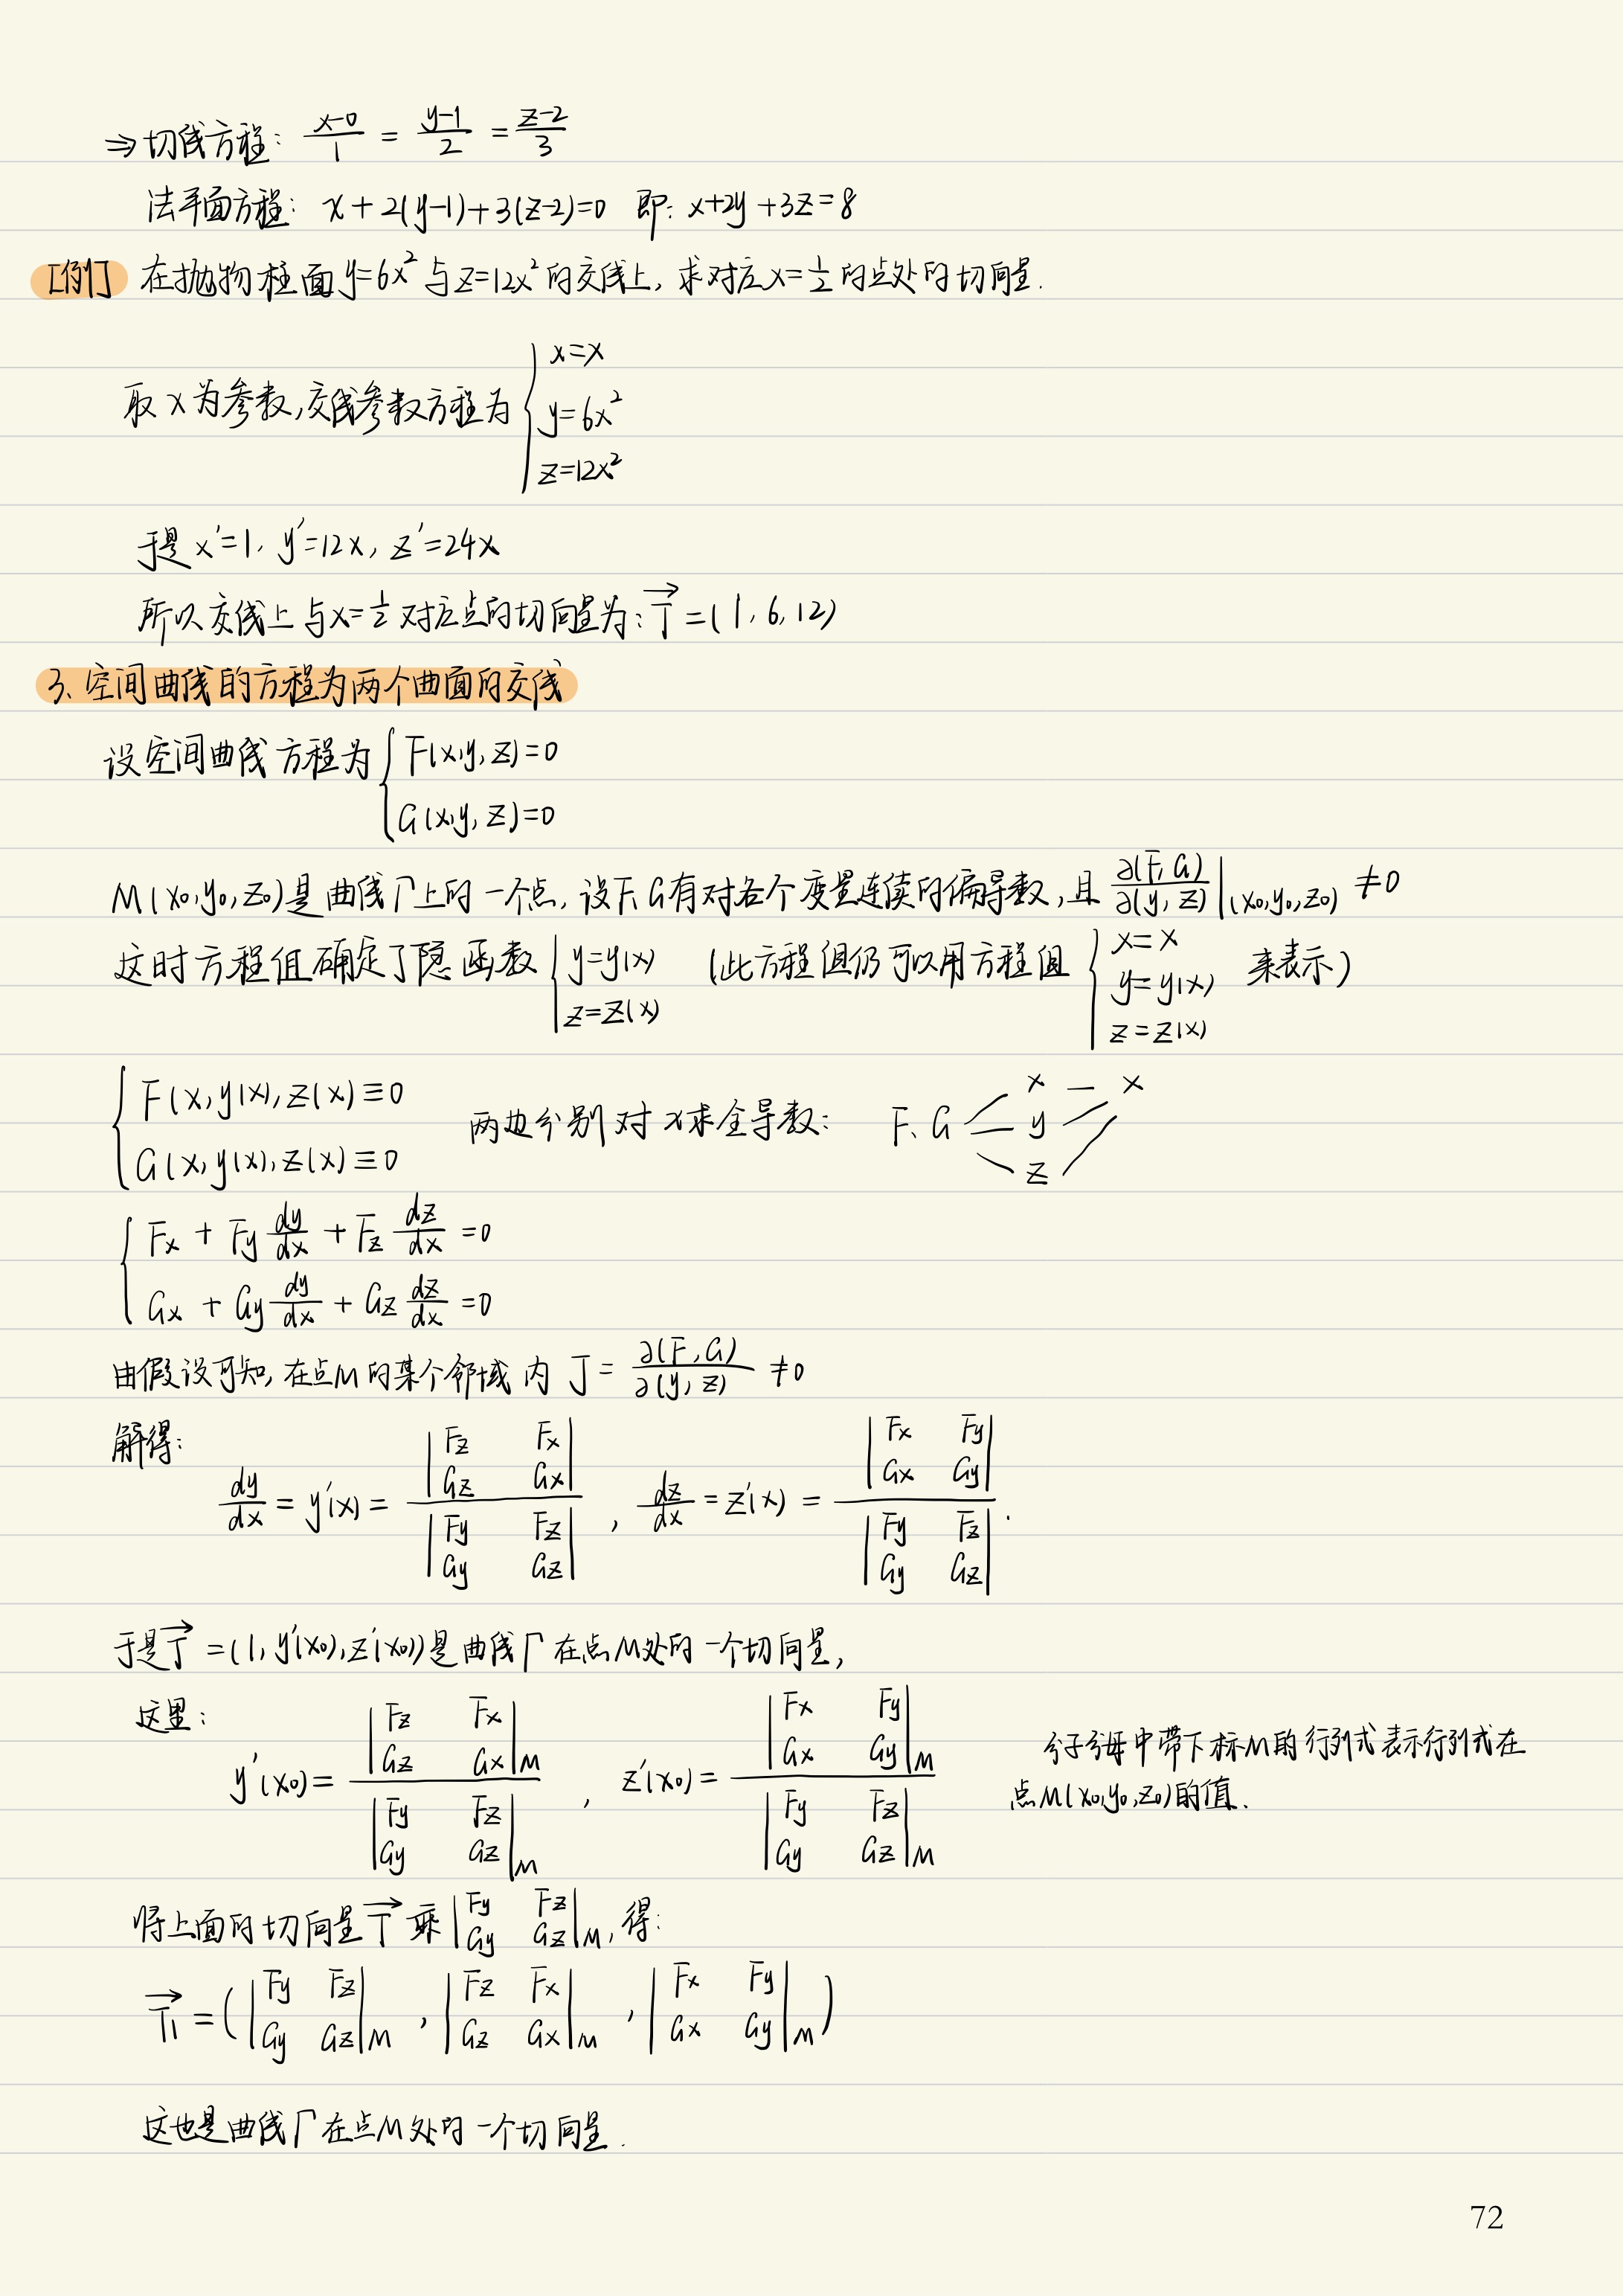 ⇒切线方程: \frac{x-0}{1} = \frac{y-1}{2} = \frac{z-2}{3}
法平面方程: x+2(y-1)+3(z-2)=0 即: x+2y+3z=8
[例] 在抛物柱面 y=6x² 与 z=12x² 的交线上, 求对应 x=\frac{1}{2} 的点处的切向量.
取 x 为参数,交线参数方程为 { x=x
y=6x²
z=12x²
于是 x'=1, y'=12x, z'=24x
所以交线上与 x=\frac{1}{2} 对应点的切向量为: \vec{T}=(1,6,12)
3、空间曲线的方程为两个曲面的交线
设空间曲线方程为 { F(x,y,z)=0
G(x,y,z)=0
M(x₀,y₀,z₀)是曲线Γ上的一个点, 设F、G有对各个变量连续的偏导数,且 \frac{∂(F,G)}{∂(y,z)}|(x₀,y₀,z₀) ≠0
这时方程组确定了隐函数 { y=y(x) z=z(x) (此方程组仍可以用方程组 { x=x y=y(x) z=z(x) 来表示)
{ F(x,y(x),z(x)≡0
G(x,y(x),z(x)≡0 两边分别对x求全导数: F、G x — x y z
{ Fx + Fy \frac{dy}{dx} + Fz \frac{dz}{dx} =0
Gx + Gy \frac{dy}{dx} + Gz \frac{dz}{dx} =0
由假设可知, 在点M的某个邻域内 J= \frac{∂(F,G)}{∂(y,z)} ≠0
解得:
\frac{dy}{dx} = y'(x) = \frac{|Fz Fx; Gz Gx|}{|Fy Fz; Gy Gz|} , \frac{dz}{dx} = z'(x) = \frac{|Fx Fy; Gx Gy|}{|Fy Fz; Gy Gz|} .
于是\vec{T} =(1, y'(x₀), z'(x₀))是曲线Γ在点M处的一个切向量,
这里:
y'(x₀)= \frac{|Fz Fx; Gz Gx|_M}{|Fy Fz; Gy Gz|_M} , z'(x₀)= \frac{|Fx Fy; Gx Gy|_M}{|Fy Fz; Gy Gz|_M} 分子分母中带下标M的行列式表示行列式在
点M(x₀,y₀,z₀)的值.
将上面的切向量\vec{T}乘 |Fy Fz; Gy Gz|_M, 得:
\vec{T₁} =( |Fy Fz; Gy Gz|_M , |Fz Fx; Gz Gx|_M , |Fx Fy; Gx Gy|_M )
这也是曲线Γ在点M处的一个切向量.
72